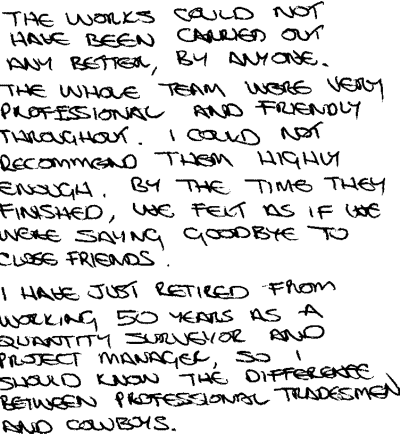 THE WORKS COULD NOT
HAVE BEEN CARRIED OUT
ANY BETTER, BY ANYONE.
THE WHOLE TEAM WERE VERY
PROFESSIONAL AND FRIENDLY
THROUGHOUT. I COULD NOT
RECOMMEND THEM HIGHLY
ENOUGH. BY THE TIME THEY
FINISHED, WE FELT AS IF WE
WERE SAYING GOODBYE TO
CLOSE FRIENDS.
I HAVE JUST RETIRED FROM
WORKING 50 YEARS AS A
QUANTITY SURVEYOR AND
PROJECT MANAGER, SO I
SHOULD KNOW THE DIFFERENCE
BETWEEN PROFESSIONAL TRADESMEN
AND COWBOYS.